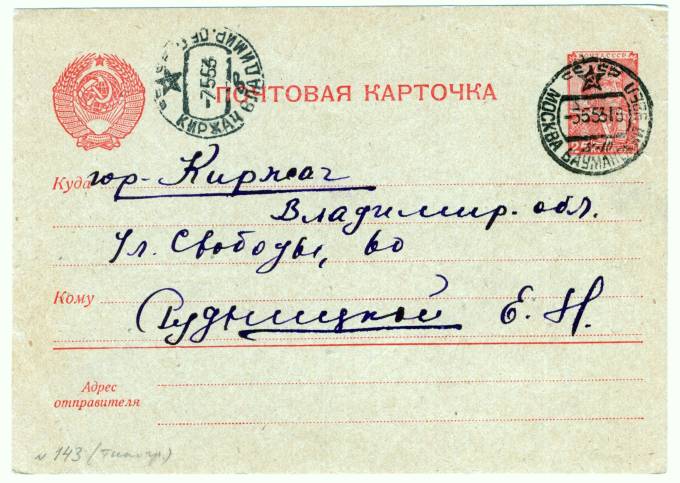 ПОЧТОВАЯ КАРТОЧКА
КИРЖАЧ ВЛАДИМИР. ОБЛ.
-7.5.53
ПОЧТА СССР
МОСКВА
Куда гор. Киржач
Владимир. обл.
Ул. Свободы, 60
Кому Рудницкой Е. Н.
Адрес
отправителя
№ 143 (типогр.)